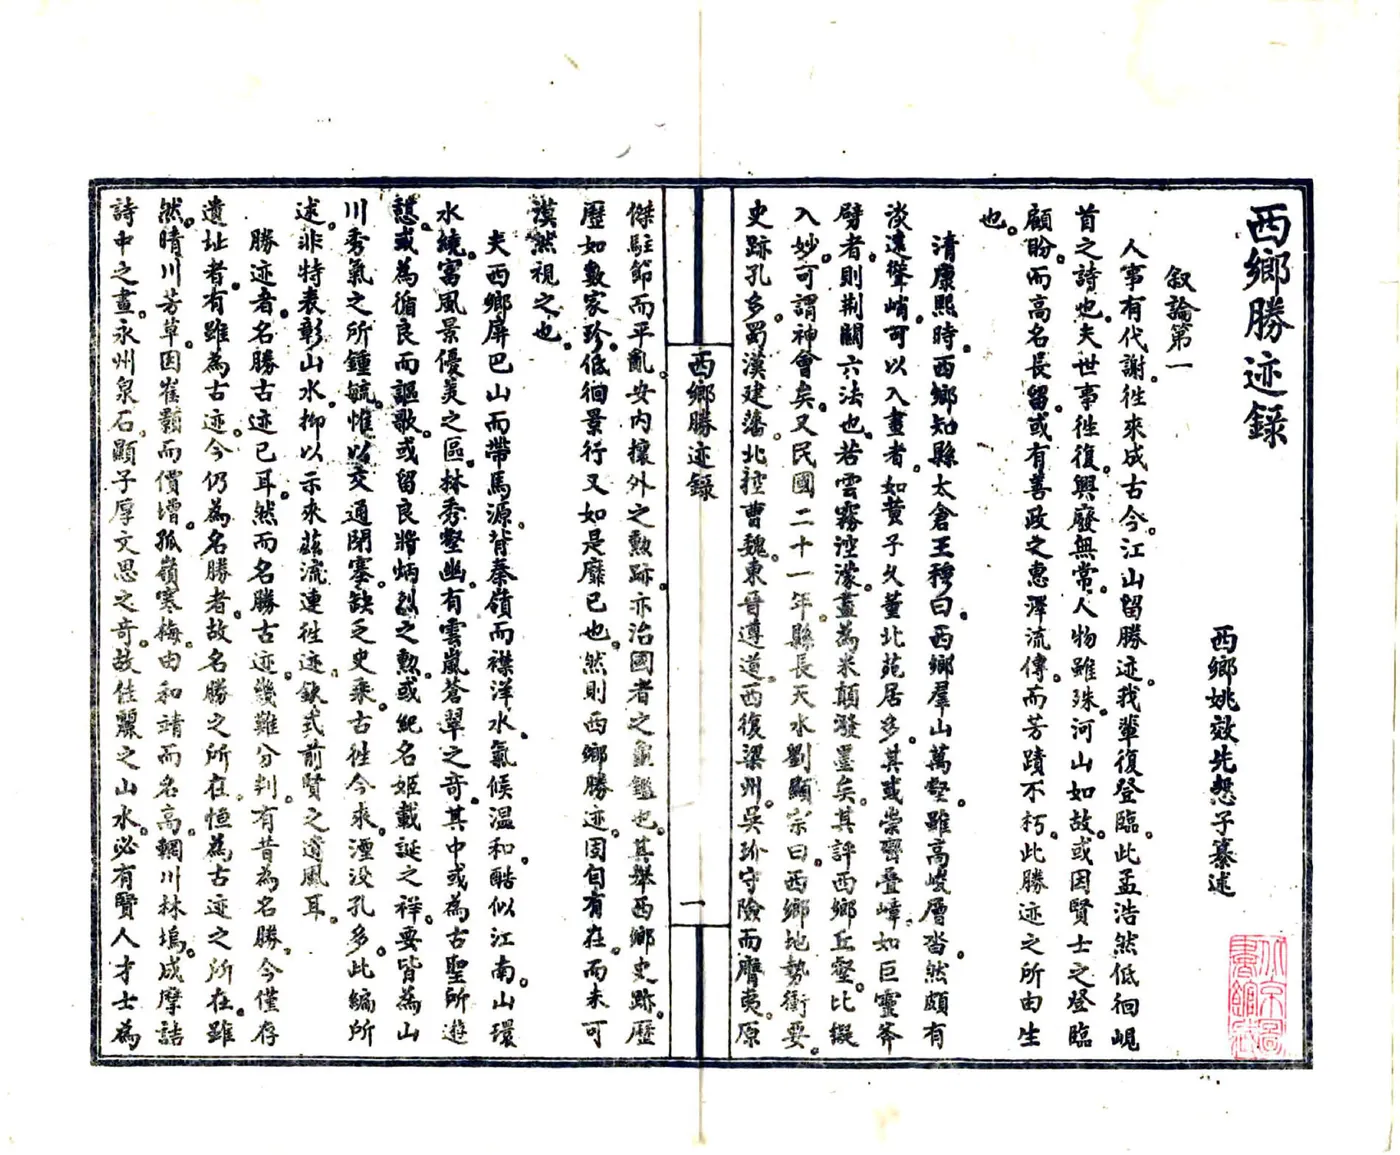 西鄉勝迹錄
西鄉姚效先恕子纂述
叙論第一
人事有代謝。徃來成古今。江山留勝迹。我輩復登臨。此孟浩然低徊峴
首之詩也。夫世事徃復。興廢無常。人物雖殊。河山如故。或因賢士之登臨
顧盼。而高名長留。或有善政之惠澤流傳。而芳蹟不朽。此勝迹之所由生
也。
清康熙時。西鄉知縣太倉王穆曰。西鄉羣山萬壑。雖高峻層沓。然頗有
淡遠聳峭。可以入畫者。如黄子久董北苑居多。其或崇巒叠嶂。如巨靈斧
劈者。則荆關六法也。若雲霧涳濛。畫為米顛潑墨矣。其評西鄉丘壑。比綴
入妙。可謂神會矣。又民國二十一年。縣長天水劉顯宗曰。西鄉地勢衝要。
史跡孔多。蜀漢建藩。北控曹魏。東晉遵道。西復梁州。吳玠守險而膺夷。原
傑駐節而平亂。安内攘外之勲跡。亦治國者之龜鑑也。其舉西鄉史跡。歷
歷如數家珍。低徊景行又如是靡已也。然則西鄉勝迹。固自有在。而未可
漠然視之也。
夫西鄉屏巴山而帶馬源。背秦嶺而襟洋水。氣候溫和。酷似江南。山環
水繞。富風景優美之區。林秀壑幽。有雲嵐蒼翠之奇。其中或為古聖所遊
憇。或為循良而謳歌。或留良將炳烈之勲。或紀名姬載誕之祥。要皆為山
川秀氣之所鍾毓。惟以交通閉塞。缺乏史乘。古徃今來。湮没孔多。此編所
述。非特表彰山水。抑以示來兹流連徃迹。欽式前賢之遺風耳。
勝迹者。名勝古迹已耳。然而名勝古迹。幾難分判。有昔為名勝。今僅存
遺址者。有雖為古迹。今仍為名勝者。故名勝之所在。恒為古迹之所在。雖
然。晴川芳草。因崔顥而價增。孤嶺寒梅。由和靖而名高。輞川林塢。成摩詰
詩中之畫。永州泉石。顯子厚文思之奇。故佳麗之山水。必有賢人才士為
西鄉勝迹錄
一